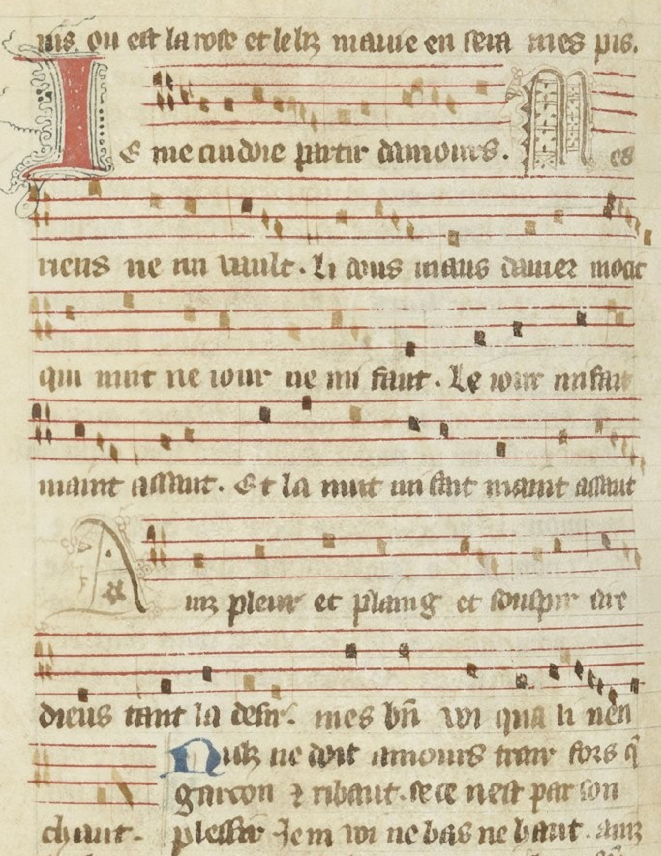 ou est la rose et le lis maine en sera mes pis.
I E me cuidoie partir damours. M es
riens ne mi vault. li dous maus damer mocit
qui nuit ne iour ne mi faut. Le iour mi fait
maint assaut. Et la nuit mi fait maint assaut
A pleur et plaing et souspir
dieus tant la desir. mes bn voi qua li nen
Nulz ne doit amours trair fors q̃
garcon ⁊ ribaut. se ce nest par son
chaut. plesir Je m voi ne bas ne haut. ainz